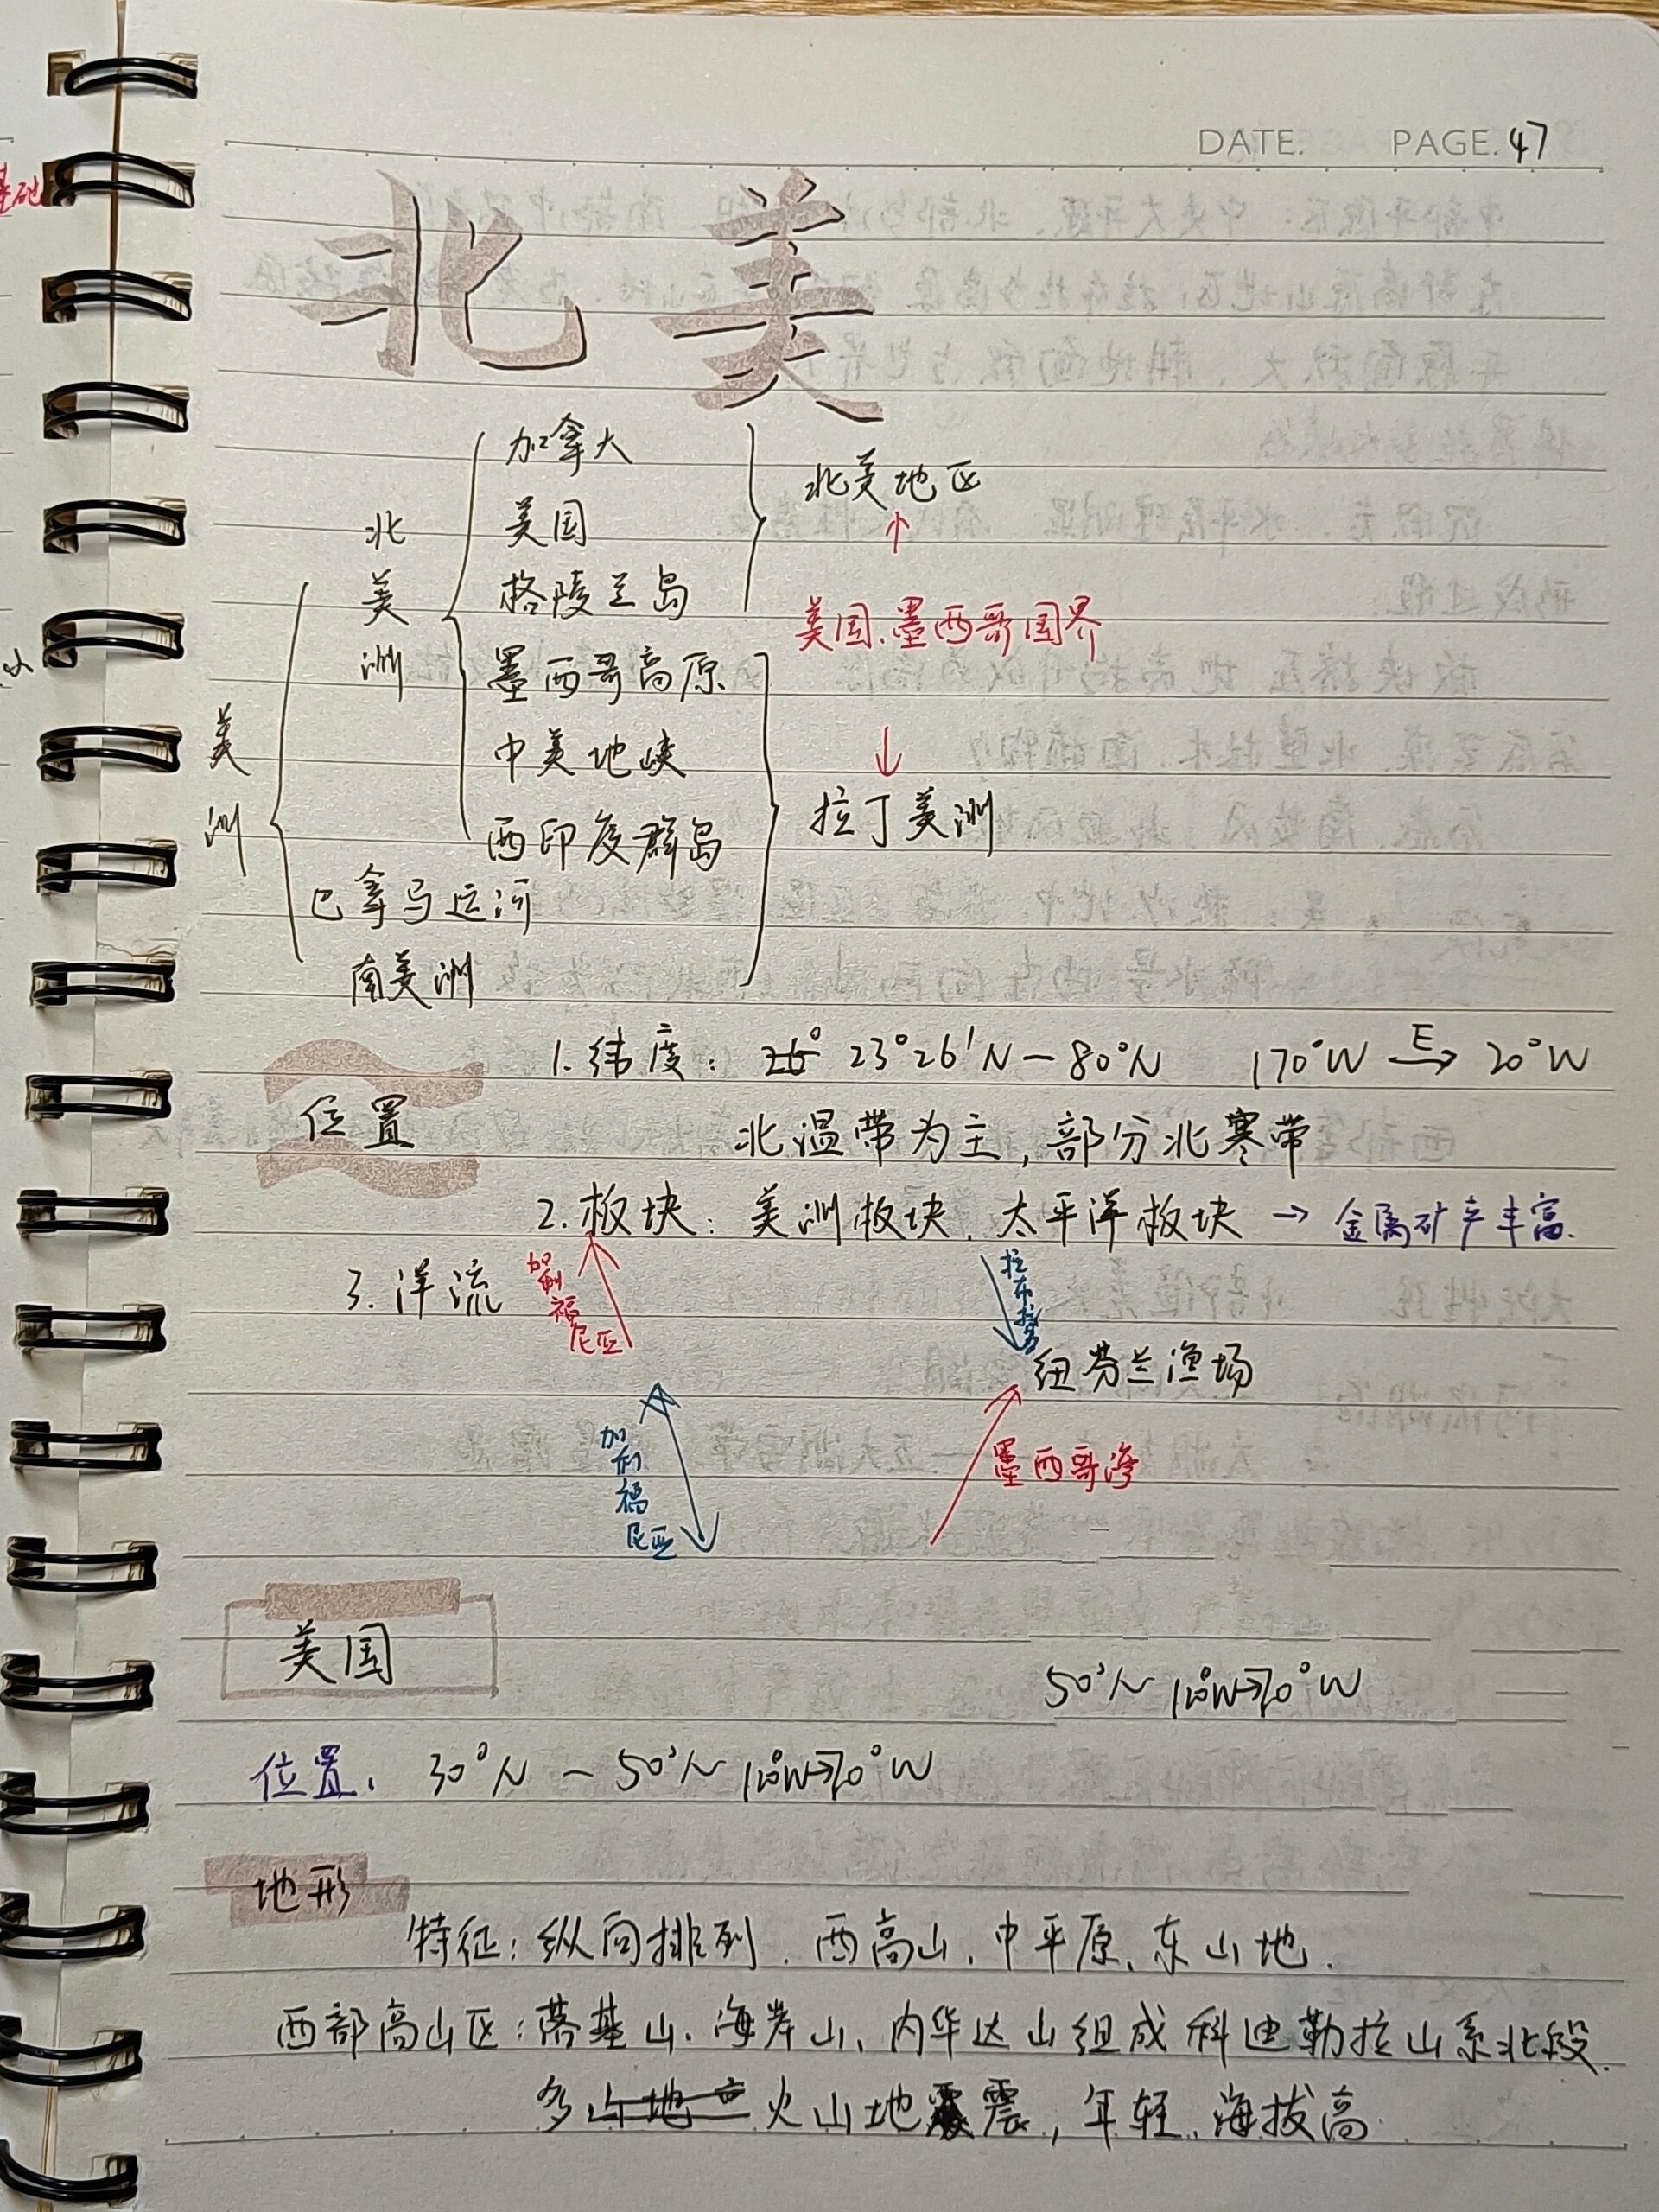 基础
DATE. PAGE. 47
北美
加拿大
美国
格陵兰岛
北美地区
北美洲
美国、墨西哥国界
墨西哥高原
中美地峡
西印度群岛
拉丁美洲
美洲
巴拿马运河
南美洲
位置
1. 纬度: 23°26'N — 80°N 170°W E→ 20°W
北温带为主, 部分北寒带
2. 板块: 美洲板块、太平洋板块 → 金属矿产丰富.
3. 洋流
加利福尼亚
拉布拉多
纽芬兰渔场
加利福尼亚
墨西哥湾
美国
50°N 120°W→70°W
位置: 30°N — 50°N 120°W→70°W
地形
特征: 纵向排列. 西高山、中平原、东山地.
西部高山区: 落基山、海岸山、内华达山组成科迪勒拉山系北段.
多火山地震, 年轻、海拔高.